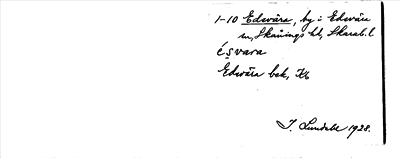 1-10 Edsvära, by i Edsvära
sn, Skånings hd, Skarab. l
ésvara
Edsvära bek, Kb
I. Lundahl 1928.